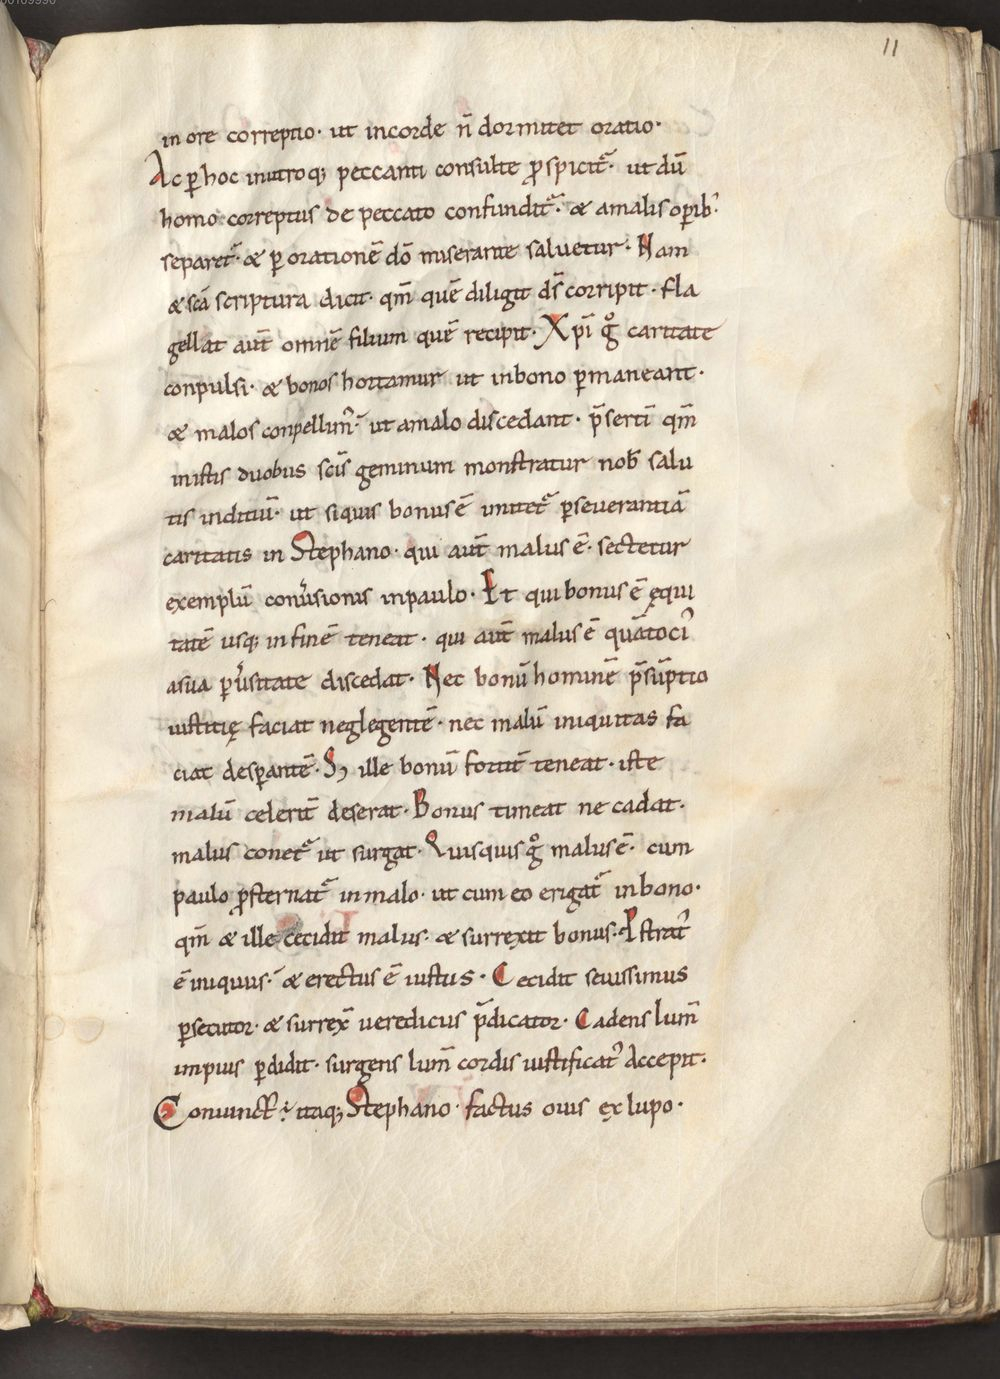 11
in ore correptio· ut incorde n̄ dormitet oratio·
Ac ꝑ hoc inutroq; peccanti consulte ꝓspicit᷑· ut dū
homo correptus de peccato confundit᷑· & amalis oꝑib;·
separet᷑· & ꝑ orationē dō miserante saluetur· Nam
& scā scriptura dicit· qm̄ quē diligit ds̄ corripit· fla
gellat aut̄ omnē filium quē recipit· Xp̄i gͦ caritate
conpulsi· & bonos hortamur ut inbono ꝑmaneant·
& malos conpellimꝰ· ut amalo discedant· p̄sertī qm̄
inistis duobus scīs geminum monstratur nob̄ salu
tis inditiū· ut siquis bonus ē imitet᷑ ꝑseuerantiā
caritatis in Stephano· qui aut̄ malus ē· sectetur
exemplū conu̾sionis inpaulo· Et qui bonus ē ęqui
tatē usq; infinē teneat· qui aut̄ malus ē quātociꝰ
asua ꝑu̾sitate discedat· Nec bonū hominē p̄sūptio
iustitię faciat neglegentē· nec malū iniquitas fa
ciat desꝑantē· Sꝫ ille bonū fortit̄ teneat· iste
malū celerit̄ deserat· Bonus timeat ne cadat·
malus conet᷑ ut surgat· Quisquis gͦ malus ē· cum
paulo ꝓsternat᷑ inmalo· ut cum eo erigat᷑ inbono·
qm̄ & ille cecidit malus· & surrexit bonus· Pstratꝰ
ē iniquus· & erectus ē iustus· Cecidit seuissimus
ꝑsecutor· & surrex̄ ueredicus p̄dicator· Cadens lum̄
impius ꝑdidit· surgens lum̄ cordis iustificatꝰ accepit·
Coniunctꝰ itaq; Stephano· factus ouis ex lupo·